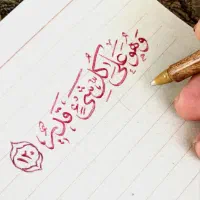 وَهُوَ عَلَىٰ كُلِّ شَيْءٍ قَدِيرٌ ﴿١٢٠﴾